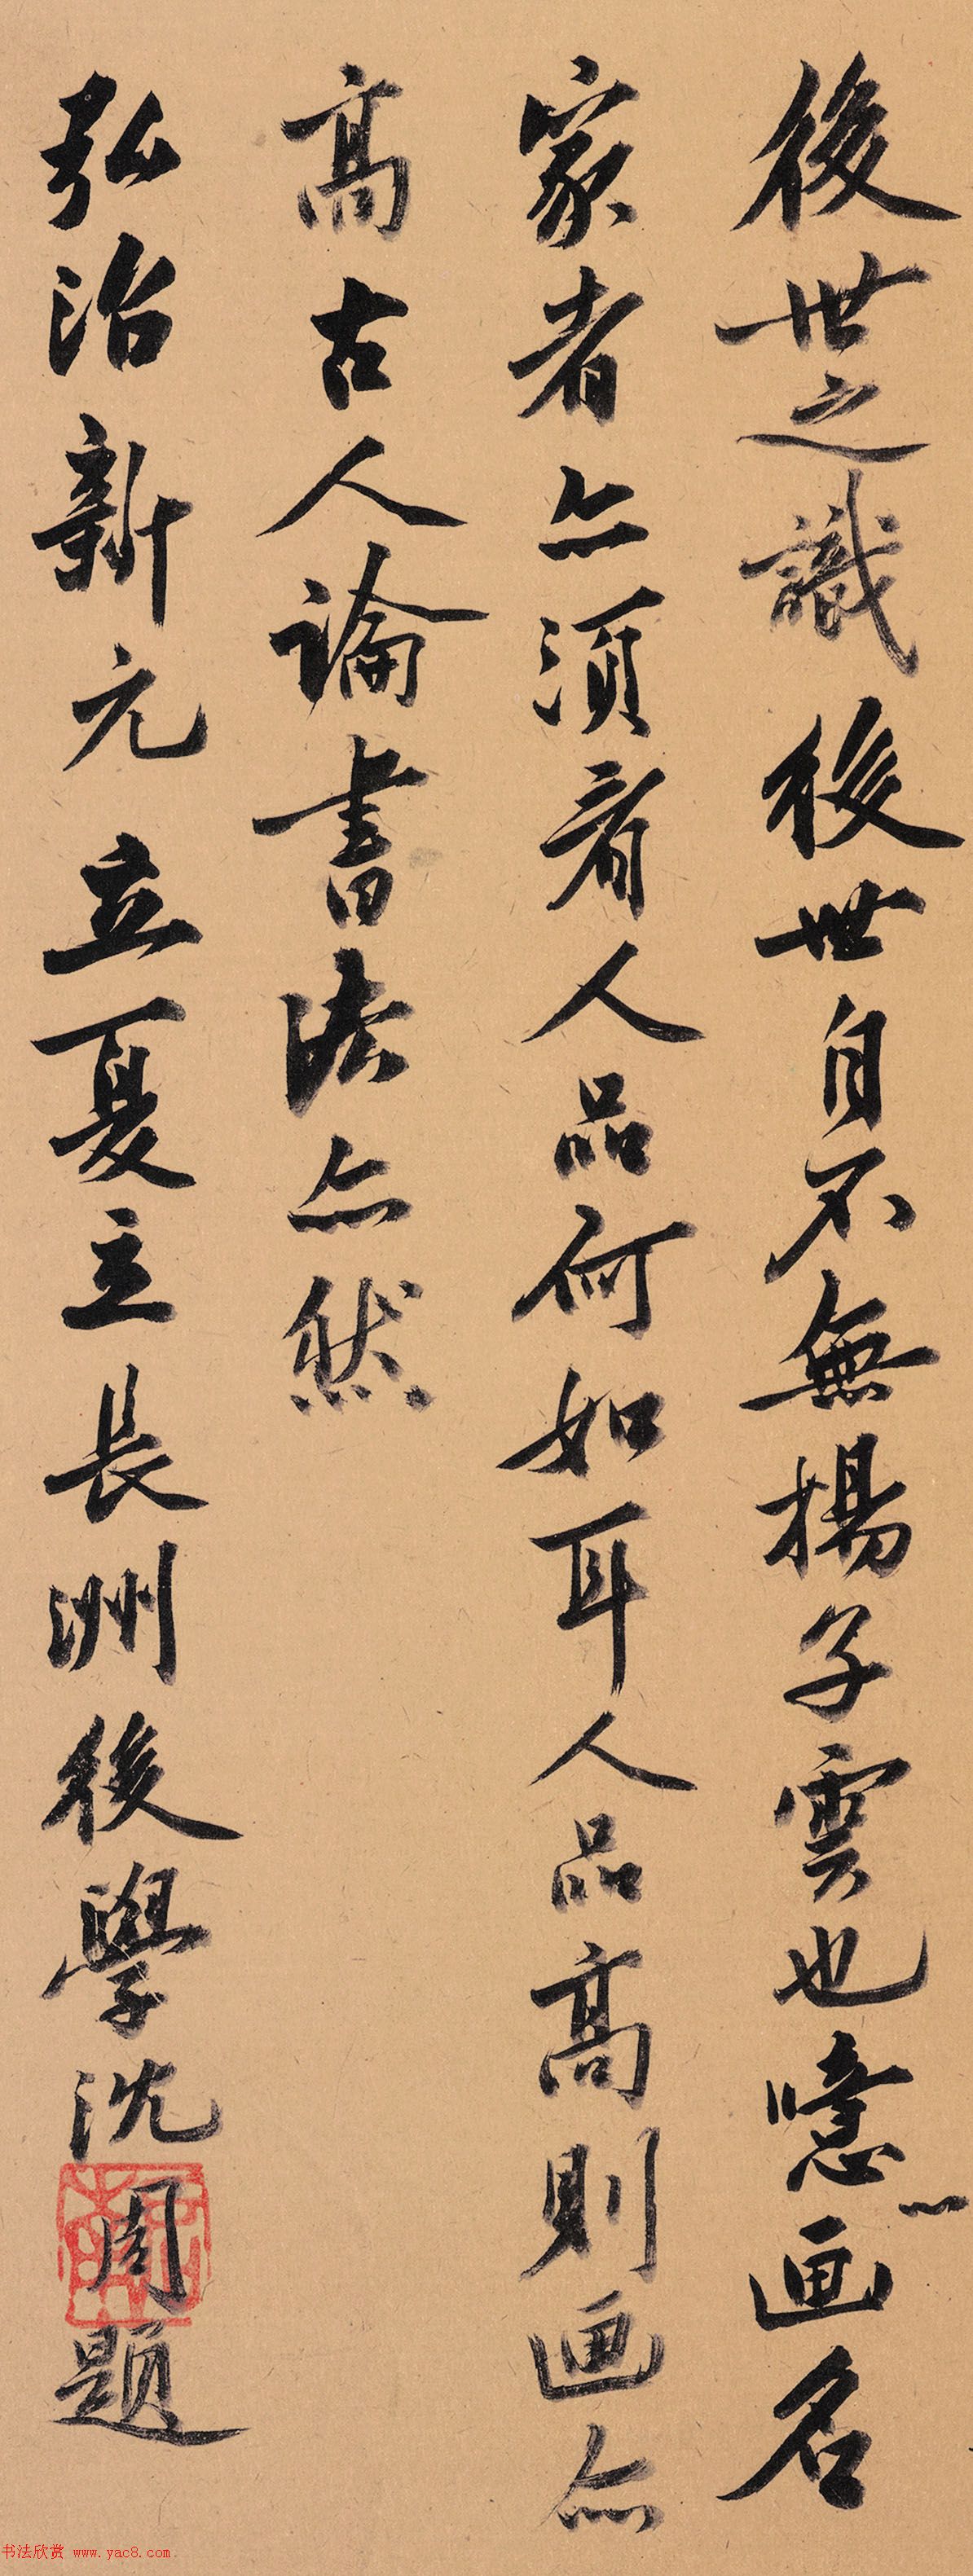 後世之識後世自不無揚子雲也噫〻画名
家者亦須看人品何如耳人品高則画亦
高古人論書法亦然
弘治新元立夏立長洲後學沈周題
书法欣赏 www.yac8.com